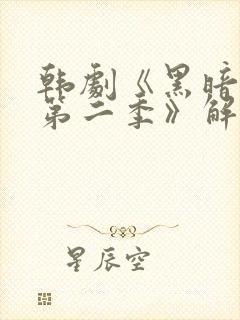 韩剧《黑暗
第二季》解
星辰空